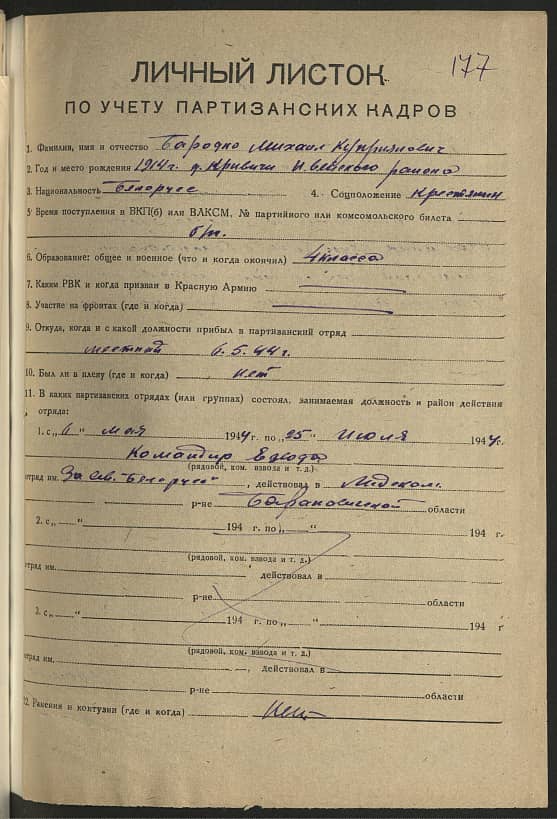 177
ЛИЧНЫЙ ЛИСТОК
ПО УЧЕТУ ПАРТИЗАНСКИХ КАДРОВ
1. Фамилия, имя и отчество Бародко Михаил Куприянович
2. Год и место рождения 1914 г. д. Кривичи Ивейского района
3. Национальность Белорусс 4. Соцположение Крестьянин
5. Время поступления в ВКП(б) или ВЛКСМ, № партийного или комсомольского билета
б/п.
6. Образование: общее и военное (что и когда окончил) 4 класса
7. Каким РВК и когда призван в Красную Армию
8. Участие на фронтах (где и когда)
9. Откуда, когда и с какой должности прибыл в партизанский отряд
местный 6.5.44 г.
10. Был ли в плену (где и когда) нет
11. В каких партизанских отрядах (или группах) состоял, занимаемая должность и район действия
отряда:
1. с „6 " мая 1944 г. по „25 " Июля 1944 г.
Командир взвода
(рядовой, ком. взвода и т. д.)
отряд им. За Сов. Белоруссию, действовал в Лидском
р-не Барановичской области
2. с „ " 194 г. по „ " 194 г.
(рядовой, ком. взвода и т. д.)
отряд им. действовал в
р-не области
3. с „ " 194 г. по „ " 194 г
(рядовой, ком. взвода и т. д.)
отряд им. , действовал в
р-не области
12. Ранения и контузии (где и когда) Нет